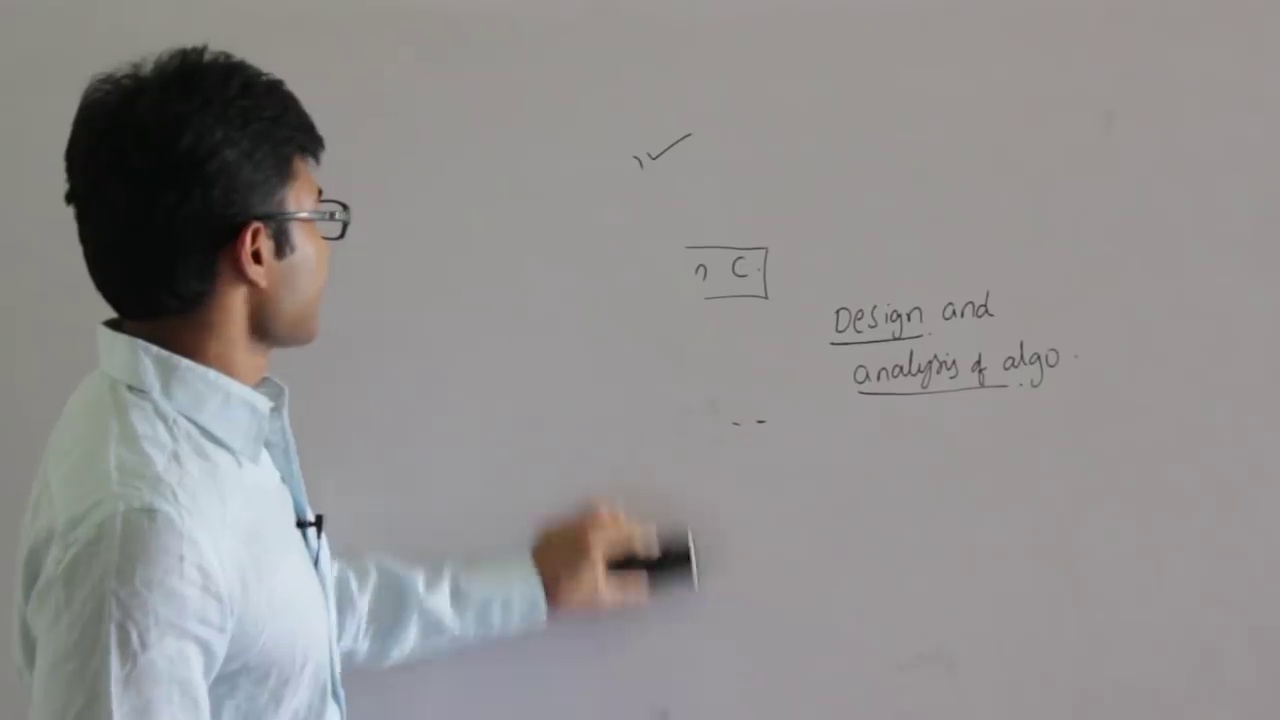 C.
Design and
analysis of algo.